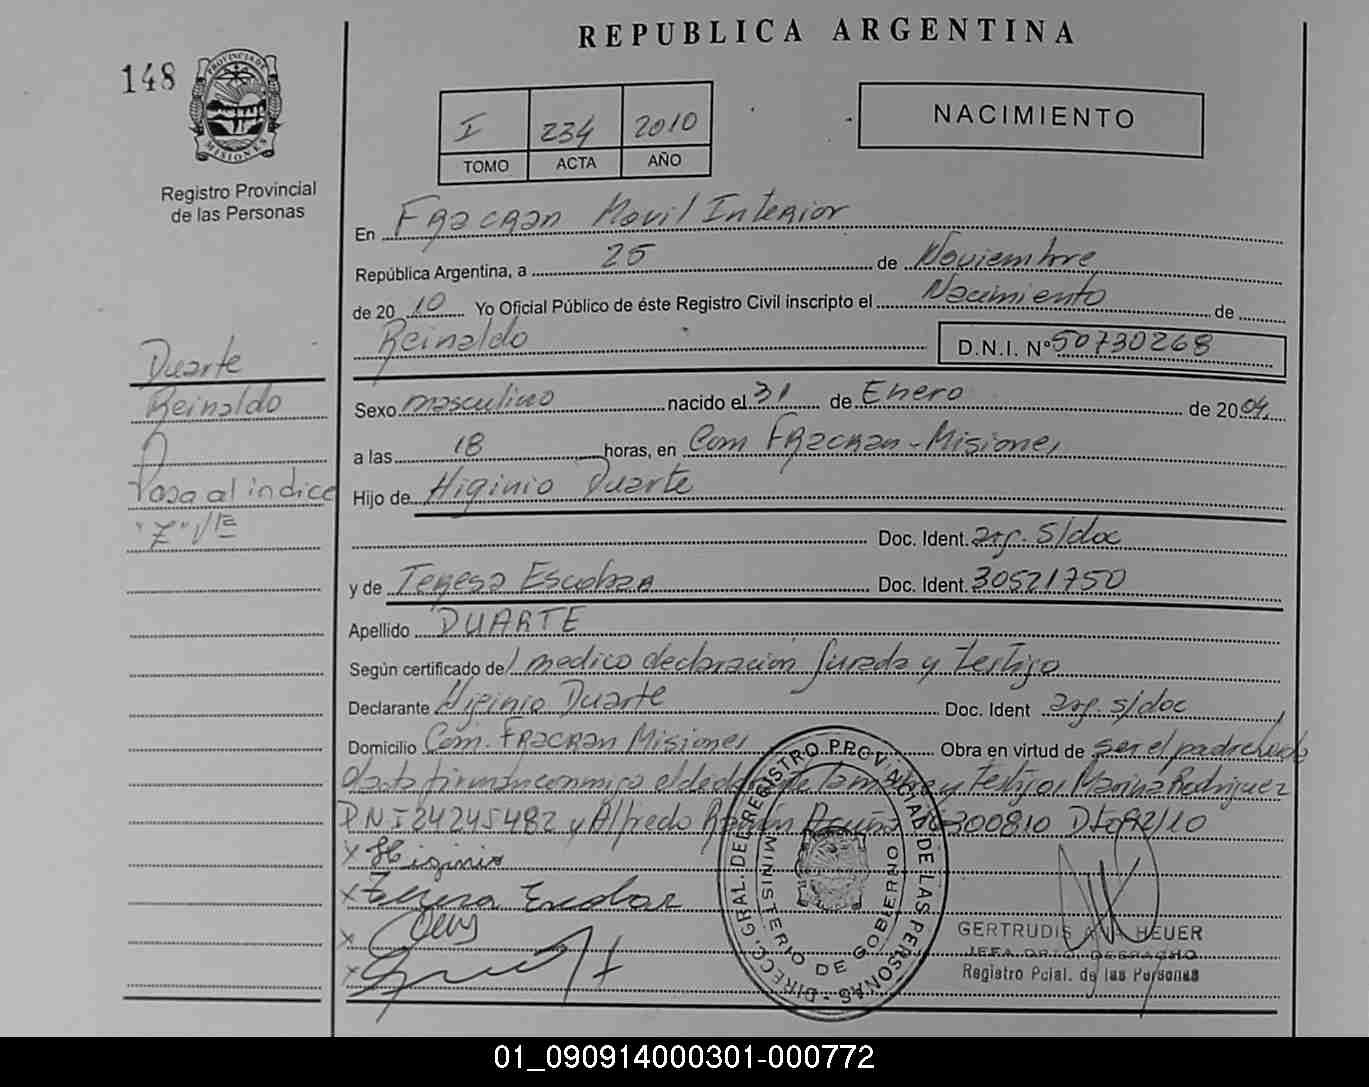 REPUBLICA ARGENTINA
148
PROVINCIA DE MISIONES
Registro Provincial
de las Personas
I 234 2010
TOMO ACTA AÑO
NACIMIENTO
En Fracran Movil Interior
República Argentina, a 25 de Noviembre
de 2010 Yo Oficial Público de éste Registro Civil inscripto el Nacimiento de
Reinaldo D.N.I. Nº 50730268
Duarte
Reinaldo
Pasa al indice
"Z"
Sexo masculino nacido el 31 de Enero de 2004
a las 18 horas, en Com Fracran - Misiones
Hijo de Higinio Duarte
Doc. Ident. arg. S/doc
y de Teresa Escobar Doc. Ident. 30521750
Apellido DUARTE
Según certificado de medico declaración Jurada y testigo
Declarante Higinio Duarte Doc. Ident arg. s/doc
Domicilio Com. Fracran Misiones Obra en virtud de ser el padre leida
esta firman conmigo el declarante la madre y Testigos Marina Rodriguez
DNI 24245482 y Alfredo Ramón Acuña 300810
x Higinio
x Teresa Escobar
x
x
DIRECC. GRAL. DEL REGISTRO PROVINCIAL DE LAS PERSONAS
MINISTERIO DE GOBIERNO
GERTRUDIS ANA HEUER
JEFA DPTO. DESPACHO
Registro Pcial. de las Personas
01_090914000301-000772